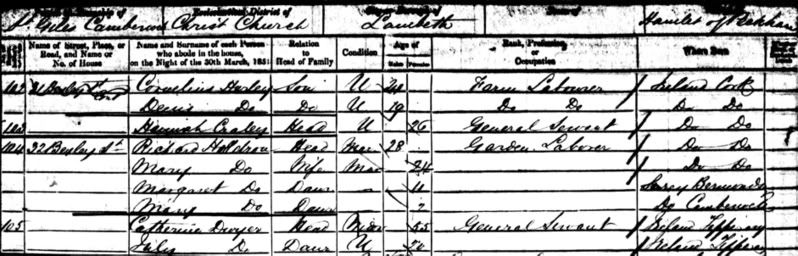 Parish or Township of Ecclesiastical District of
St Giles Camberwell Christ Church Lambeth Hamlet of Peckham
Name of Street, Place, or Road, and Name or No. of House
Name and Surname of each Person who abode in the house, on the Night of the 30th March, 1851
Relation to Head of Family
Condition
Age of
Males Females
Rank, Profession, or Occupation
Where Born
102 Cornelius Son U 24 Farm Labourer Ireland Cork
Denis Do Do U 19 Do Do Do Do
103 Hannah Head U 26 General Servant Do Do
104 Richard Head Mar 28 Garden Laborer Do Do
Mary Do Wife Mar 24 Do Do
Margaret Do Daur 11 Surrey Bermondsey
Mary Do Daur 7 Do Camberwell
105 Catherine Dwyer Head 55 General Servant Ireland Tipperary
Do Daur U 20 Ireland Tipperary